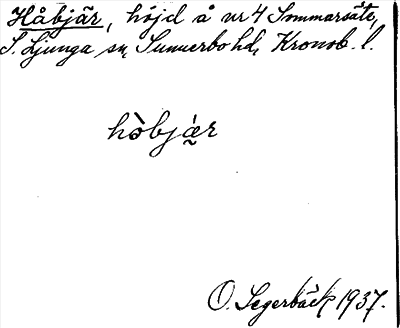 Håbjär, höjd å nr 4 Sommarsäte,
S. Ljunga sn, Sunnerbo hd, Kronob. l.
hòbjä́r
O. Segerbäck 1937.